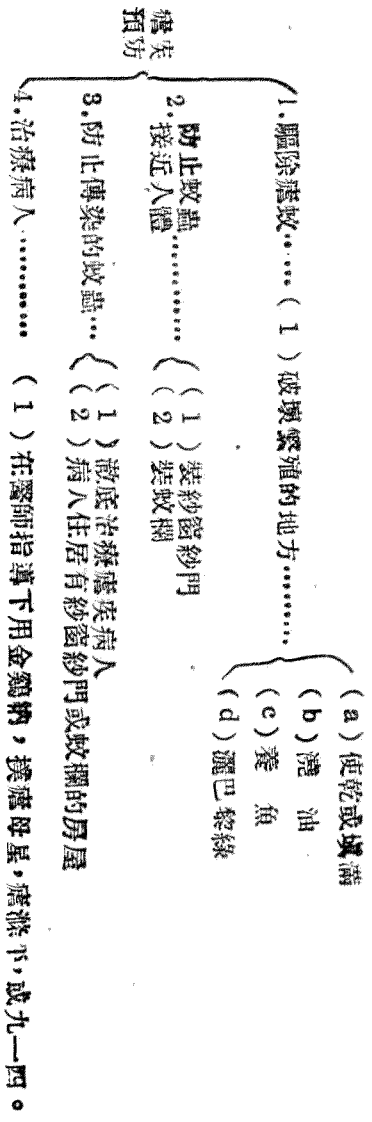 瘧疾
預防
1.驅除瘧蚊……(1)破壞繁殖的地方…………
(a)使乾或填滿
(b)澆 油
(c)養 魚
(d)灑巴黎綠
2.防止蚊蟲
接近人體…………
(1)裝紗窗紗門
(2)裝蚊欄
3.防止傳染的蚊蟲…
(1)澈底治療瘧疾病人
(2)病人住居有紗窗紗門或蚊欄的房屋
4.治療病人…………(1)在醫師指導下用金鷄納,撲瘧母星,瘧滌平,或九一四。